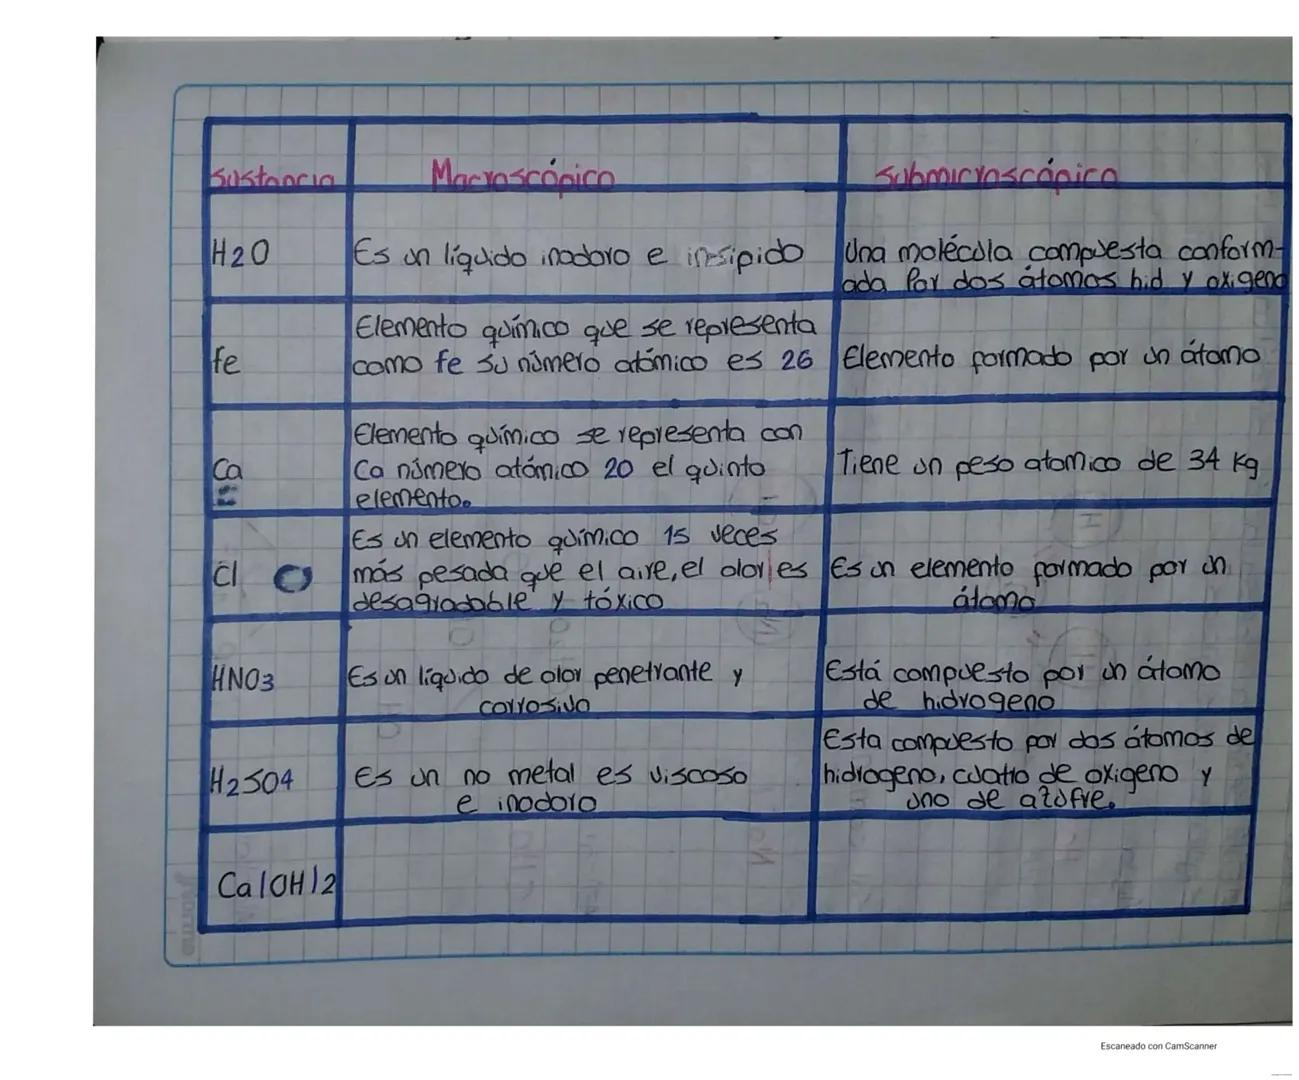 Sustancia
Macroscópico
Submicroscópico
H2O
Es un líquido inodoro e insípido
Una molécula compuesta conform-
ada por dos átomos hid y oxigeno
fe
Elemento químico que se representa
como fe su número atómico es 26
Elemento formado por un átomo
Ca
Elemento químico se representa con
Ca número atómico 20 el quinto
elemento.
Tiene un peso atomico de 34 kg
Cl
Es un elemento químico 15 veces
más pesada que el aire, el olor es
desagradable y tóxico
Es un elemento formado por un
átomo
HNO3
Es un líquido de olor penetrante y
corrosivo
Está compuesto por un átomo
de hidrogeno
H2SO4
Es un no metal es viscoso
e inodoro
Esta compuesto por dos átomos de
hidrogeno, cuatro de oxigeno y
uno de azufre.
Ca(OH)2
Escaneado con CamScanner